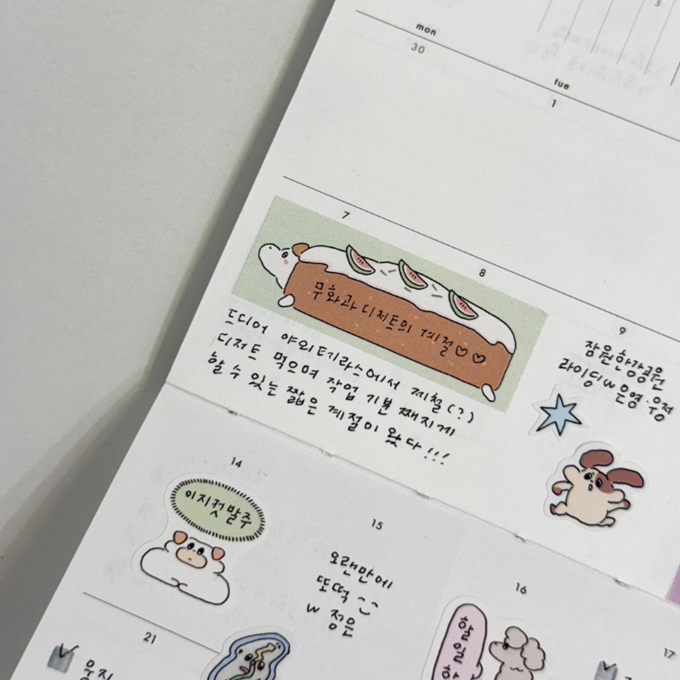 mon
30
tue
1
7
8
무화과 디저트의 계절♡♡
드디어 야외테라스에서 제철(?)
디저트 먹으며 작업 기분 째지게
할 수 있는 짧은 계절이 왔다!!!
9
잠원한강공원
라이딩 w 은영·우정
14
이지컷발주
15
오랜만에
또떡
w 정은
16
할일
17
21